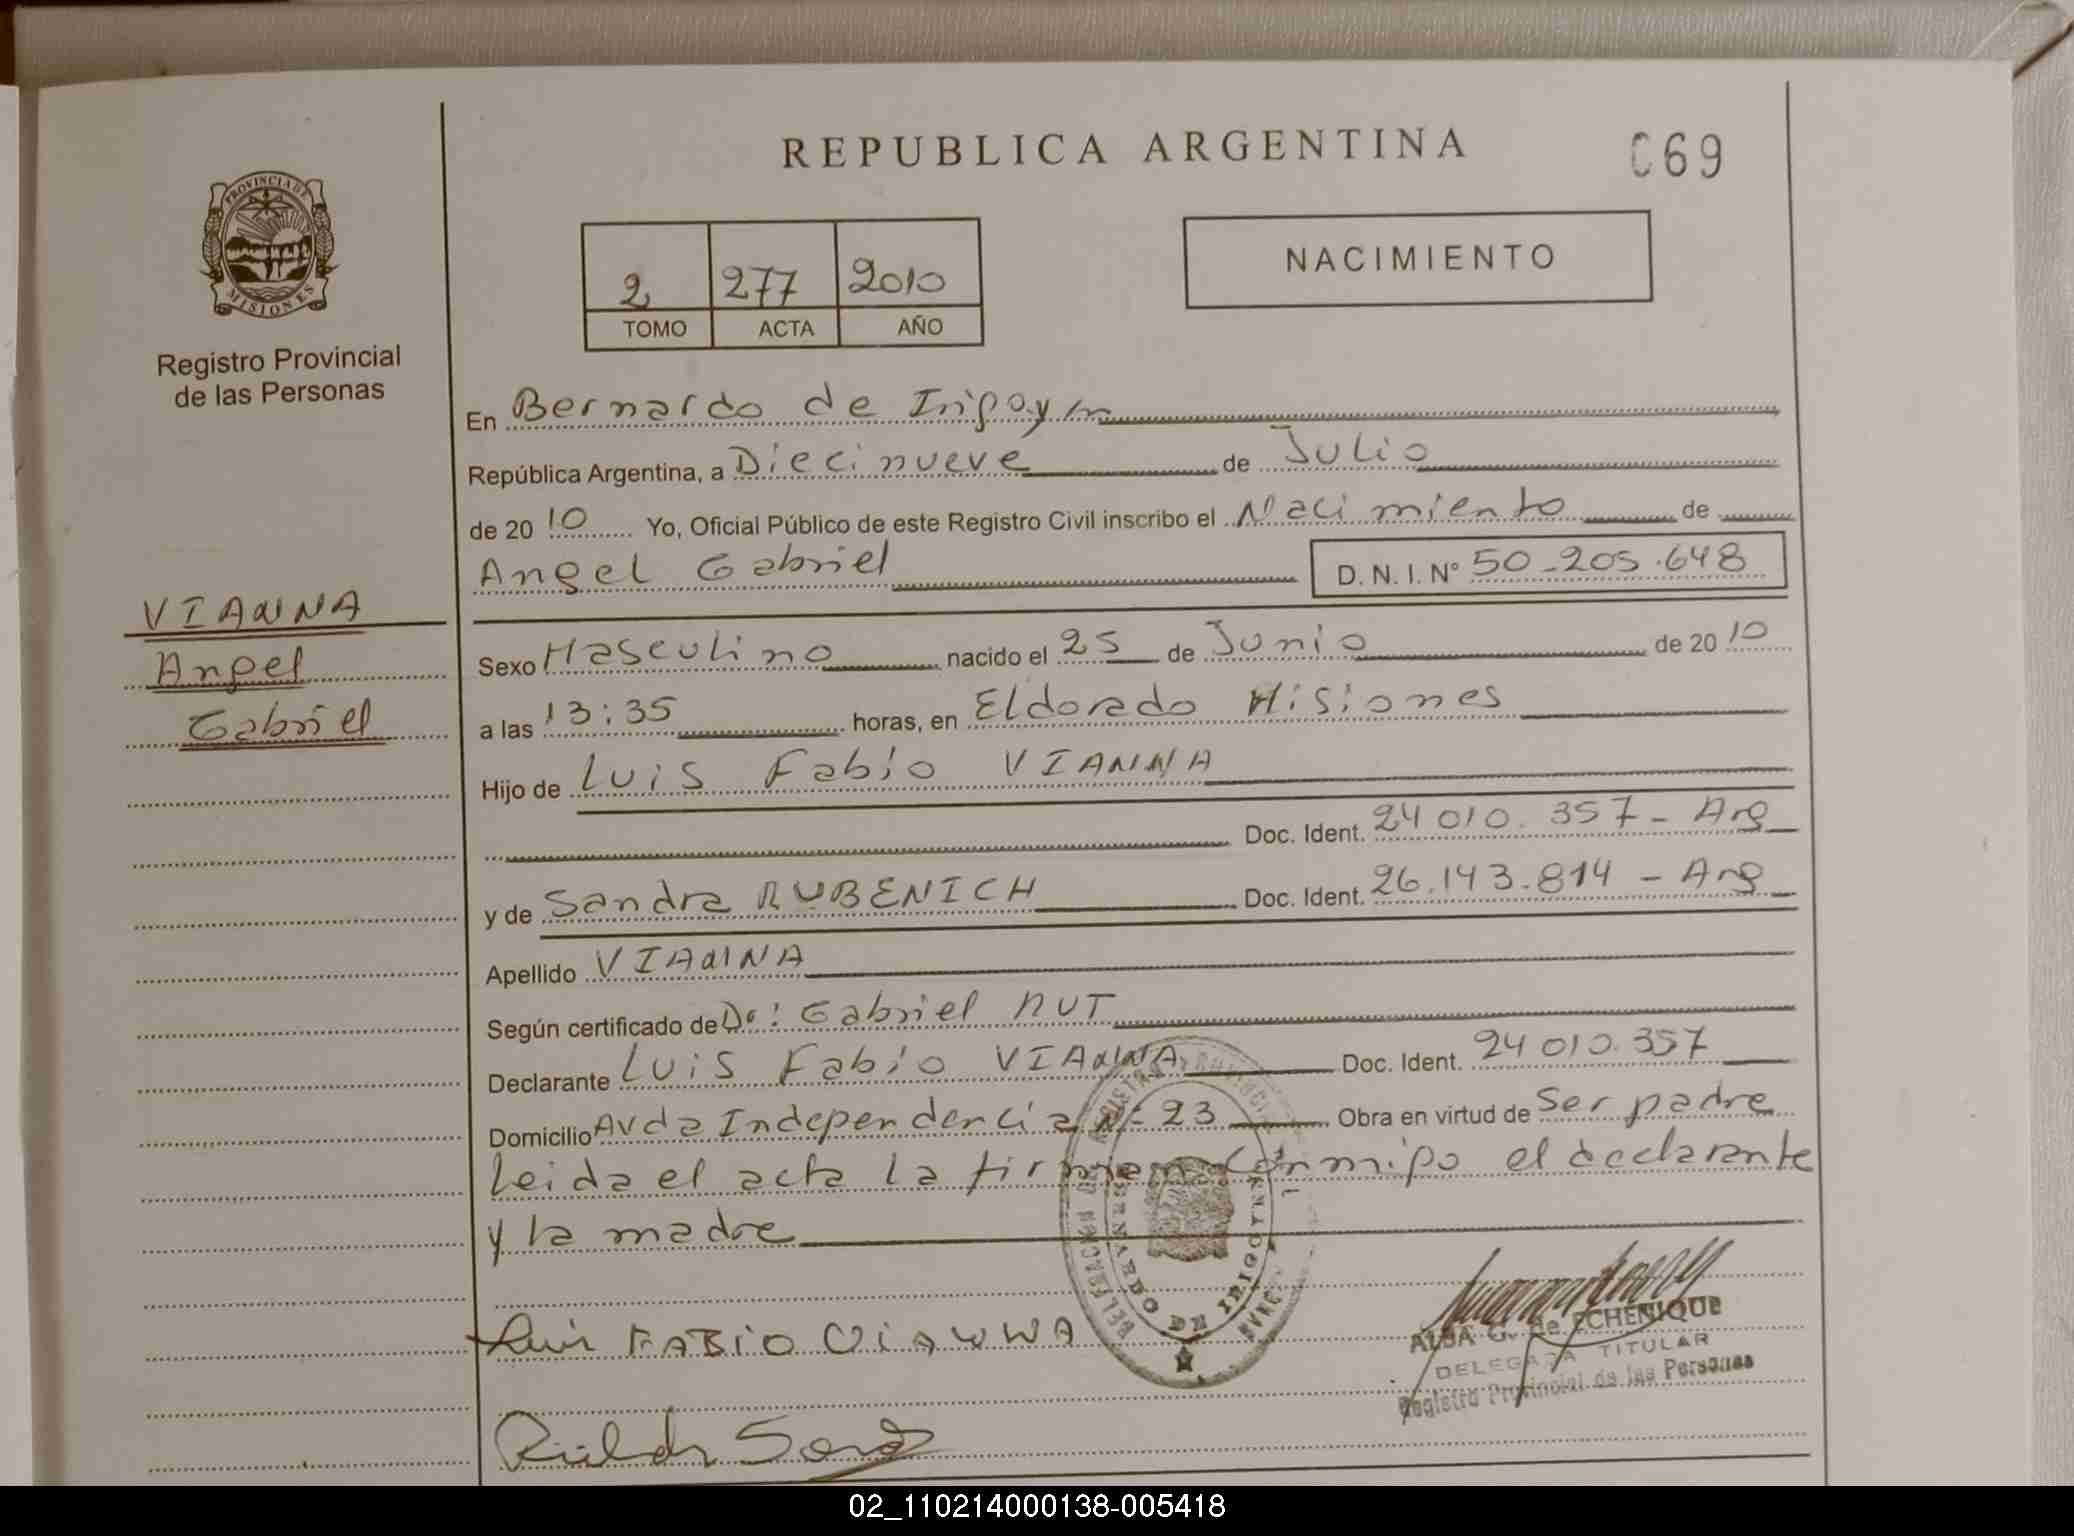 REPUBLICA ARGENTINA
069
PROVINCIA DE
MISIONES
Registro Provincial
de las Personas
2 277 2010
TOMO ACTA AÑO
NACIMIENTO
En Bernardo de Irigoyen
República Argentina, a Diecinueve de Julio
de 20 10 Yo, Oficial Público de este Registro Civil inscribo el Nacimiento de
Angel Gabriel D. N. I. Nº 50-205.648
VIANNA
Angel
Gabriel
Sexo Masculino nacido el 25 de Junio de 20 10
a las 13:35 horas, en Eldorado Misiones
Hijo de Luis Fabio VIANNA
Doc. Ident. 24 010. 357 - Arg
y de Sandra RUBENICH Doc. Ident. 26.143.814 - Arg
Apellido VIANNA
Según certificado de Dr: Gabriel RUT
Declarante Luis Fabio VIANNA Doc. Ident. 24 010.357
Domicilio Avda Independencia Nº 23 Obra en virtud de Ser padre
Leida el acta la firman conmigo el declarante
y la madre
Luis FABiO ViANNA
ALBA G. de ECHENIQUE
DELEGADA TITULAR
Registro Provincial de las Personas
BERNARDO DE IRIGOYEN
02_110214000138-005418